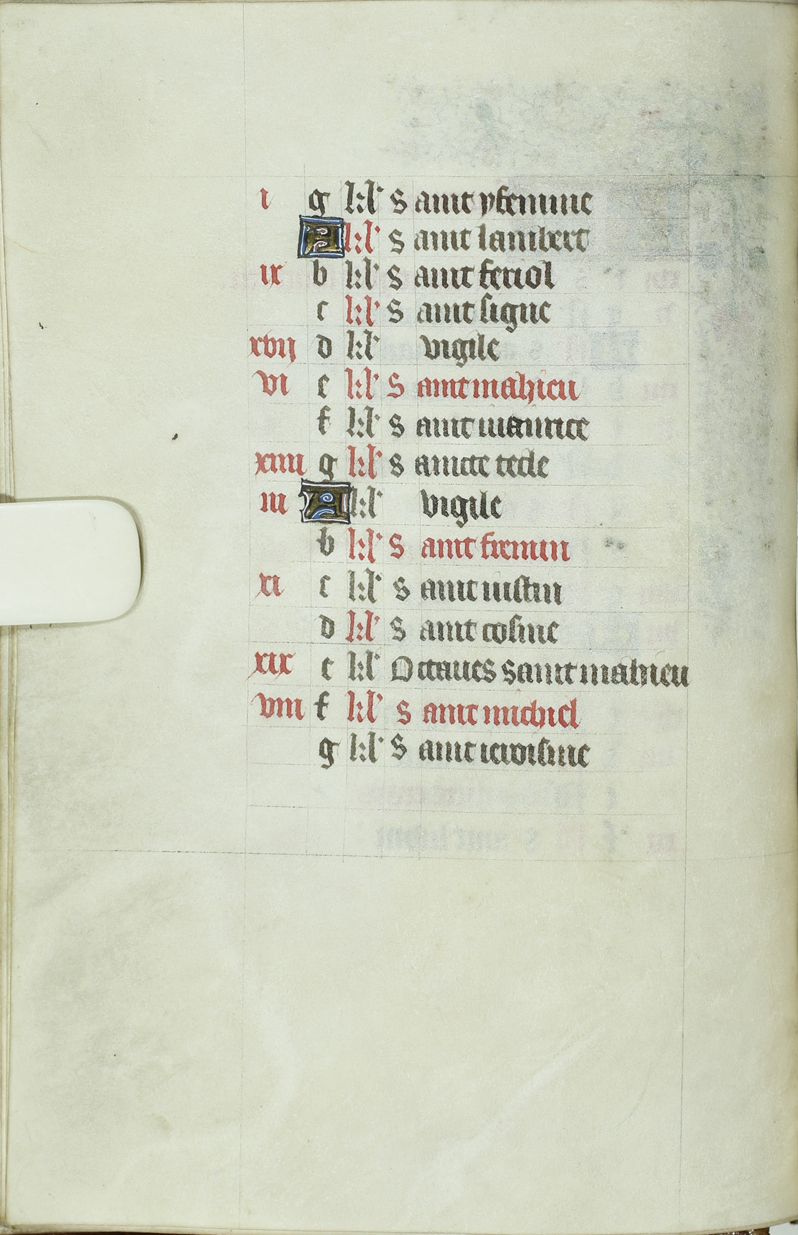 i g kl' Saint yfemme
A kl' Saint lambert
ix b kl' Saint feriol
c kl' Saint signe
xvij d kl' vigile
vi e kl' Saint mahieu
f kl' Saint maurice
xiiii g kl' Saincte tecle
iii A kl' vigile
b kl' Saint fremin
xi c kl' Saint iustin
d kl' Saint cosme
xix e kl' Octaues Saint mahieu
viii f kl' Saint michiel
g kl' Saint